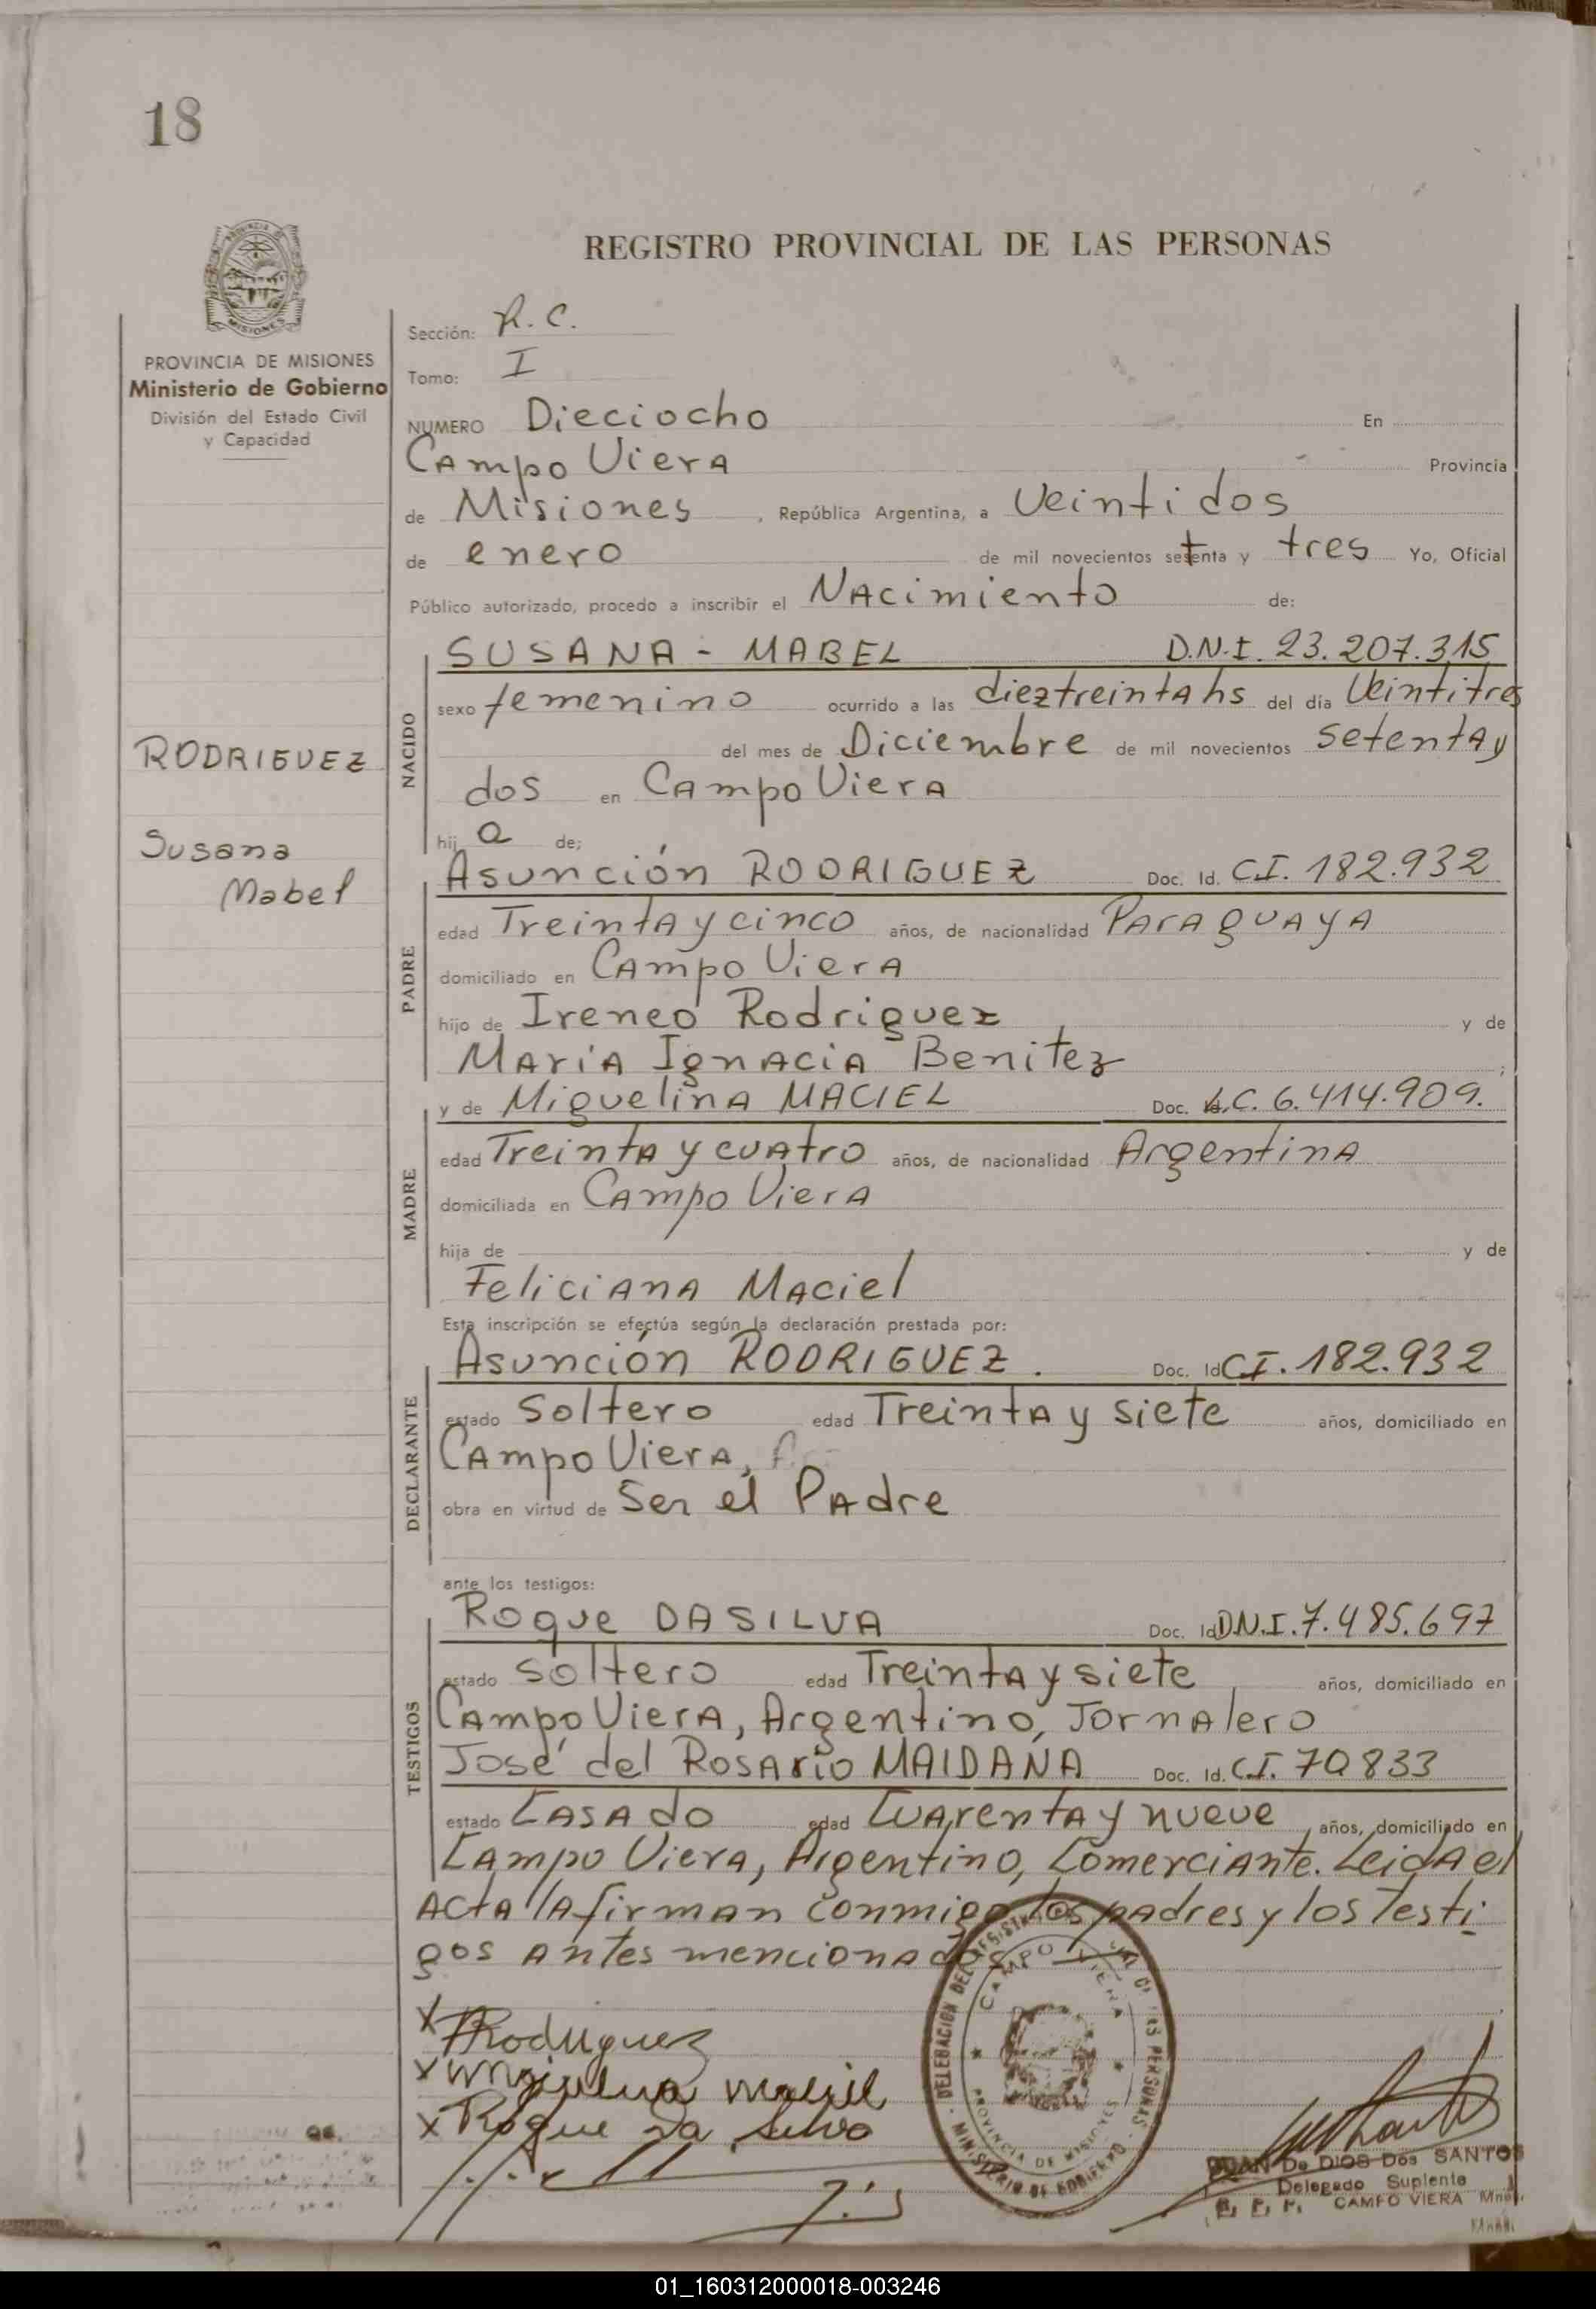 18
REGISTRO PROVINCIAL DE LAS PERSONAS
MISIONES
PROVINCIA DE MISIONES
Ministerio de Gobierno
División del Estado Civil
y Capacidad
RODRIGUEZ
Susana
Mabel
Sección: R.C.
Tomo: I
NUMERO Dieciocho En
Campo Viera Provincia
de Misiones, República Argentina, a Veintidos
de enero de mil novecientos setenta y tres Yo, Oficial
Público autorizado, procedo a inscribir el Nacimiento de:
NACIDO
SUSANA - MABEL D.N.I. 23.207.315
sexo femenino ocurrido a las dieztreinta hs del día Veintitres
del mes de Diciembre de mil novecientos setenta y
dos en Campo Viera
hij a de;
PADRE
Asunción RODRIGUEZ Doc. Id. C.I. 182.932
edad Treinta y cinco años, de nacionalidad Paraguaya
domiciliado en Campo Viera
hijo de Ireneo Rodriguez y de
María Ignacia Benitez ;
MADRE
y de Miguelina MACIEL Doc. L.C. 6.414.909.
edad Treinta y cuatro años, de nacionalidad Argentina
domiciliada en Campo Viera
hija de y de
Feliciana Maciel
Esta inscripción se efectúa según la declaración prestada por:
DECLARANTE
Asunción RODRIGUEZ. Doc. Id C.I. 182.932
estado Soltero edad Treinta y siete años, domiciliado en
Campo Viera,
obra en virtud de Ser el Padre
ante los testigos:
TESTIGOS
Roque DASILVA Doc. Id D.N.I. 7.485.697
estado Soltero edad Treinta y siete años, domiciliado en
Campo Viera, Argentino, Jornalero
José del Rosario MAIDANA Doc. Id. C.I. 70833
estado Casado edad Cuarenta y nueve años, domiciliado en
Campo Viera, Argentino, Comerciante. Leida el
Acta la firman conmigo los padres y los Testi-
gos antes mencionados
X ARodriguez
X Miguelina Maciel
X Roque Da Silva
DELEGACION DEL REGISTRO PROVINCIAL DE LAS PERSONAS
CAMPO VIERA
PROVINCIA DE MISIONES
MINISTERIO DE GOBIERNO
JUAN De DIOS Dos SANTOS
Delegado Suplente
R. P. P. CAMPO VIERA Mnes.
01_160312000018-003246